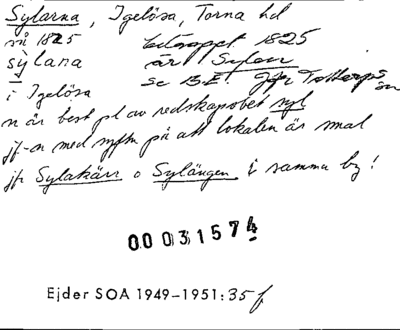 Sylarna, Igelösa, Torna hd
så 1825 1825
sylana är Sylen
i Igelösa se B.E. Jfr
n är best pl av redskapsbet syl
jf-en med syften på att lokalen är smal
jfr Sylakärr o Sylängen i samma by!
00031574
Ejder SOA 1949–1951:35 f